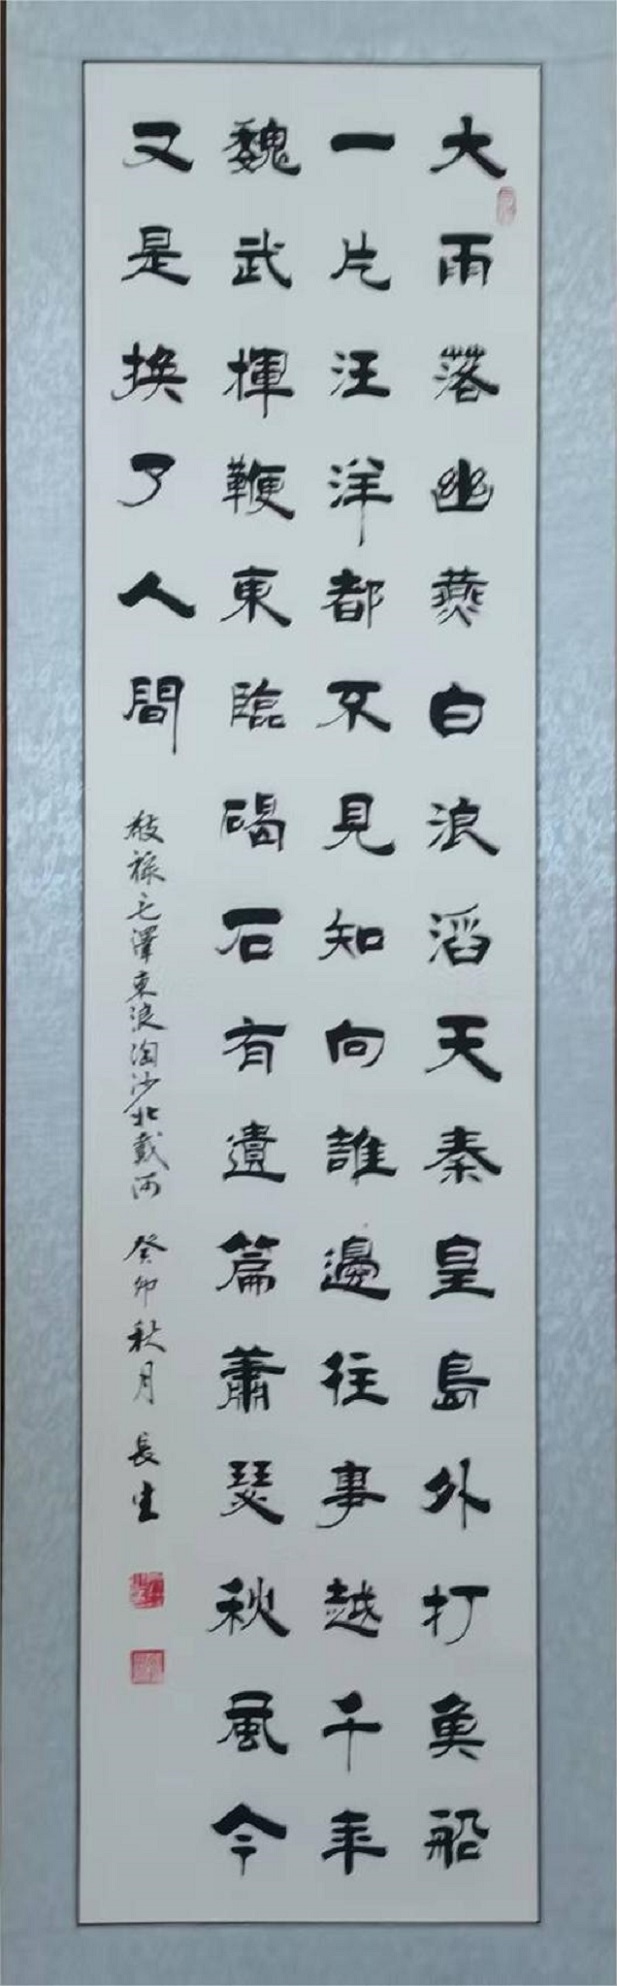 大雨落幽燕白浪滔天秦皇島外打魚船
一片汪洋都不見知向誰邊往事越千年
魏武揮鞭東臨碣石有遺篇蕭瑟秋風今
又是換了人間
敬錄毛澤東浪淘沙北戴河 癸卯秋月 長生